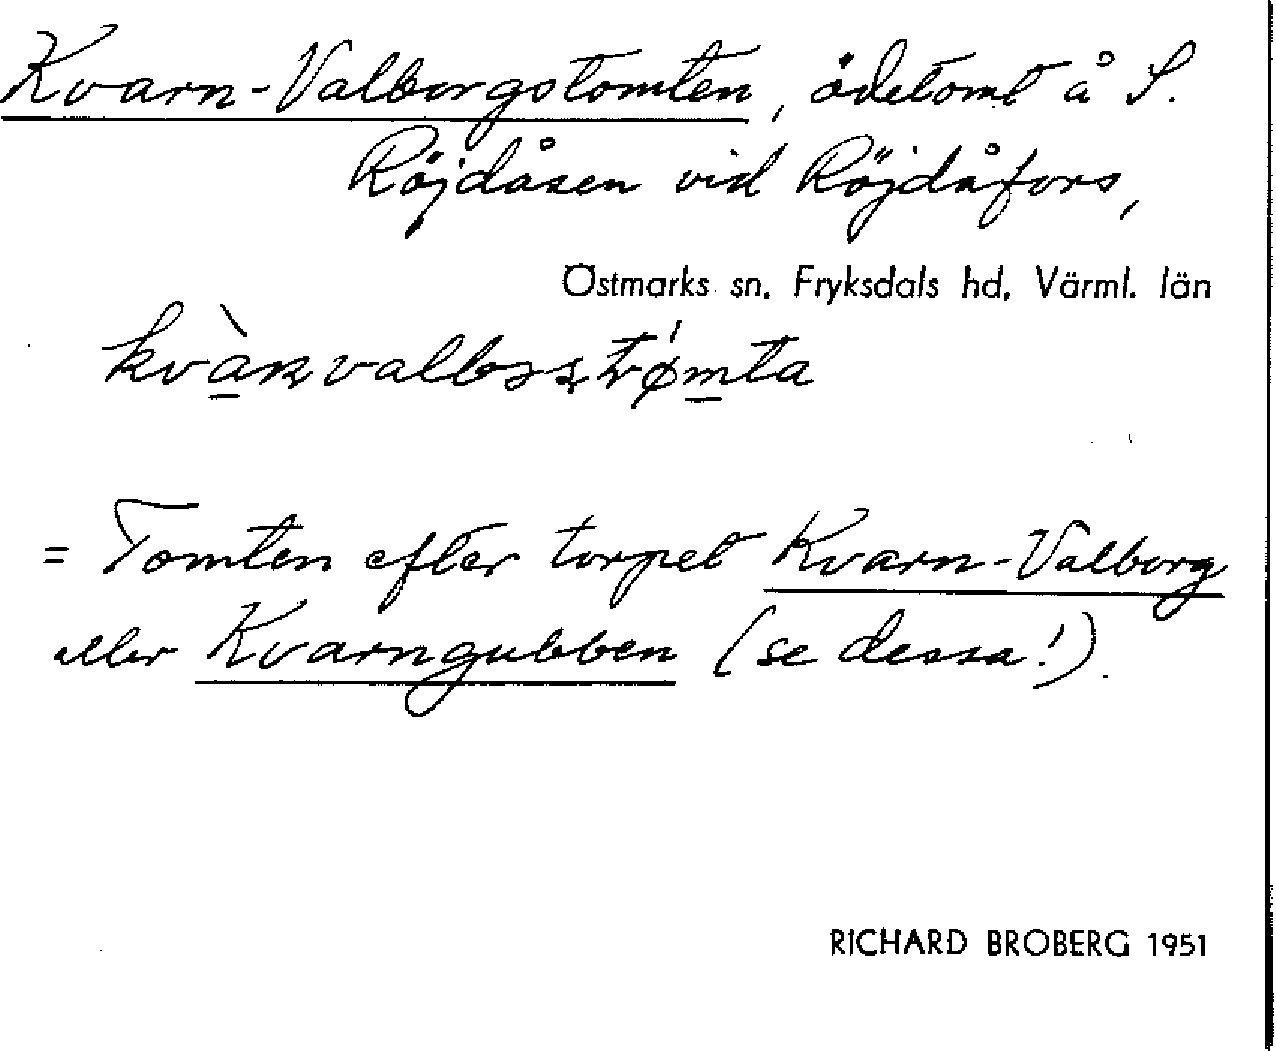 Kvarn-Valborgstomten, ödetomt å S.
Röjdåsen vid Röjdåfors,
Östmarks sn. Fryksdals hd, Värml. län
= Tomten efter torpet Kvarn-Valborg
eller Kvarngubben (se dessa!).
RICHARD BROBERG 1951